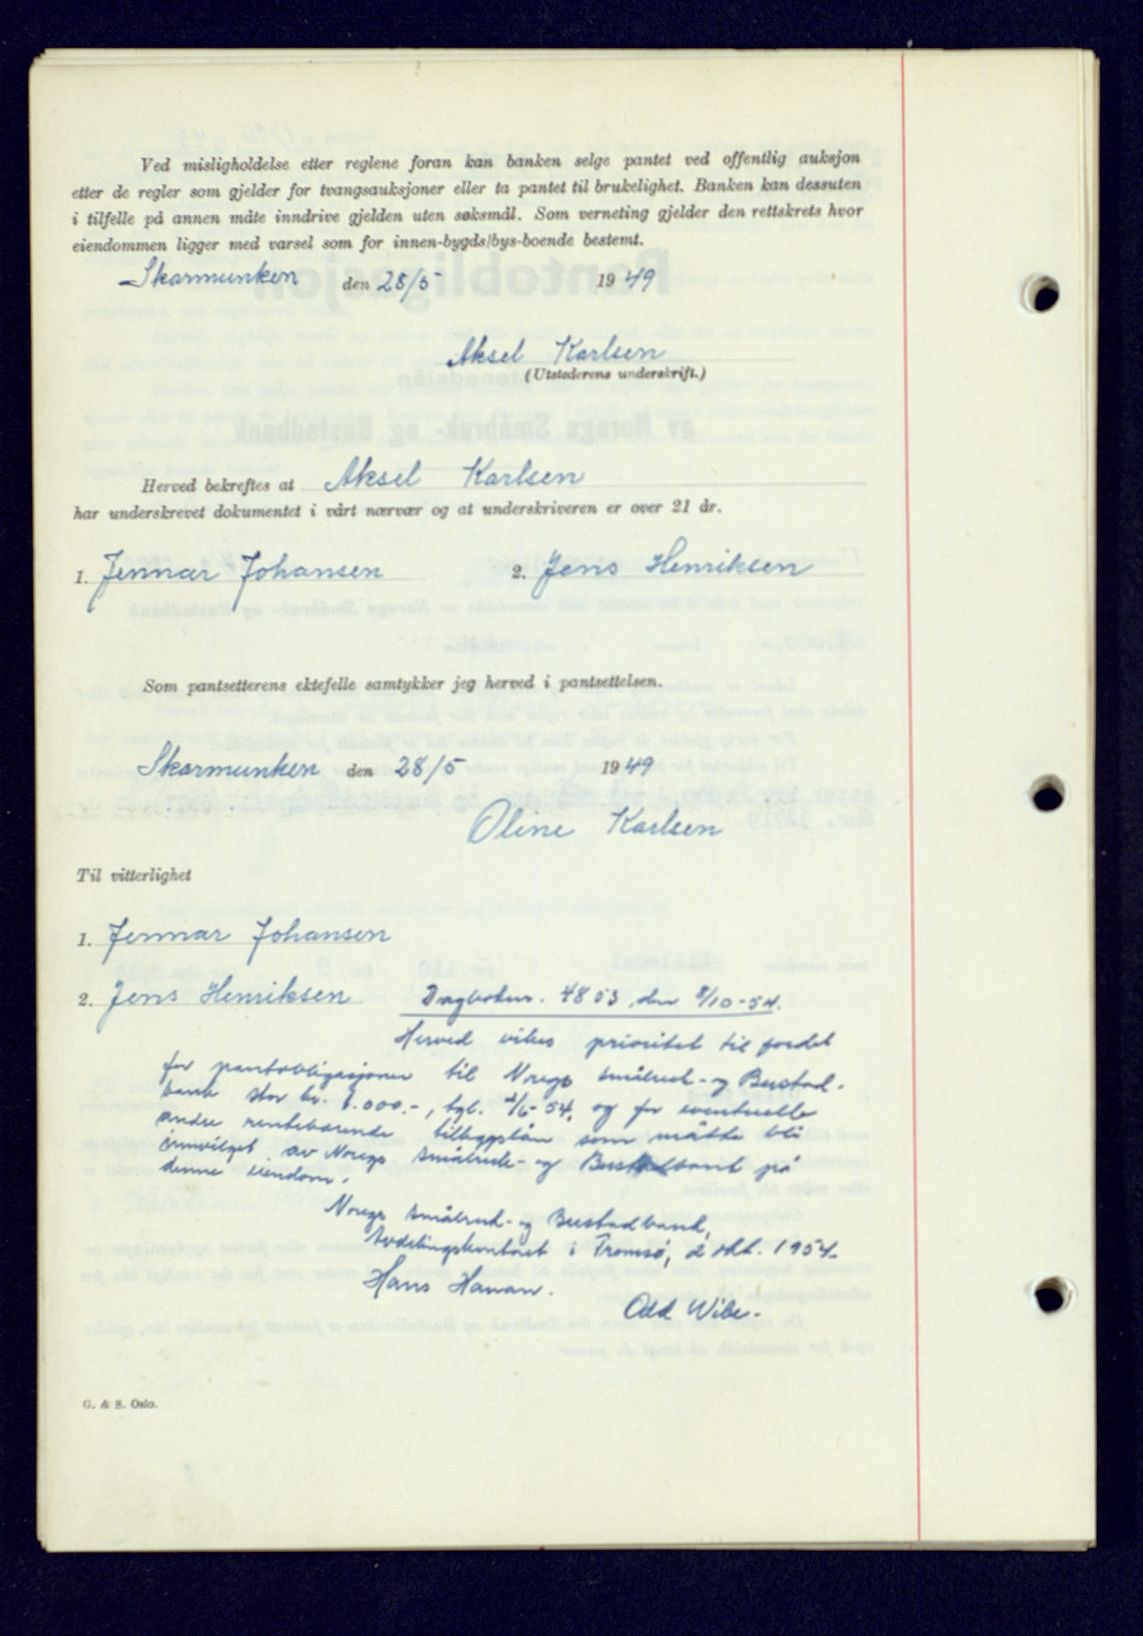 Ved misligholdelse etter reglene foran kan banken selge pantet ved offentlig auksjon
etter de regler som gjelder for tvangsauksjoner eller ta pantet til brukelighet. Banken kan dessuten
i tilfelle på annen måte inndrive gjelden uten søksmål. Som verneting gjelder den rettskrets hvor
eiendommen ligger med varsel som for innen-bygds/bys-boende bestemt.
Skarmunken den 28/5 1949
Aksel Karlsen
(Utstederens underskrift.)
Herved bekreftes at Aksel Karlsen
har underskrevet dokumentet i vårt nærvær og at underskriveren er over 21 år.
1. Jennar Johansen 2. Jens Henriksen
Som pantsetterens ektefelle samtykker jeg herved i pantsettelsen.
Skarmunken den 28/5 1949
Oline Karlsen
Til vitterlighet
1. Jennar Johansen
2. Jens Henriksen
Dagboknr. 4853, den 8/10-54.
Herved vikes prioritet til fordel
for pantobligasjoner til Noregs Småbruk- og Bustad-
bank stor kr. .000.-, tgl. /6-54, og for eventuelle
andre rentebærende tilleggslån som måtte bli
innvilget av Noregs Småbruk- og Bustadbank på
denne eiendom.
Noregs Småbruk- og Bustadbank,
Avdelingskontoret i Tromsø, 2 okt. 1954.
Hans Hanan.
Odd Wibe.
G. & S. Oslo.